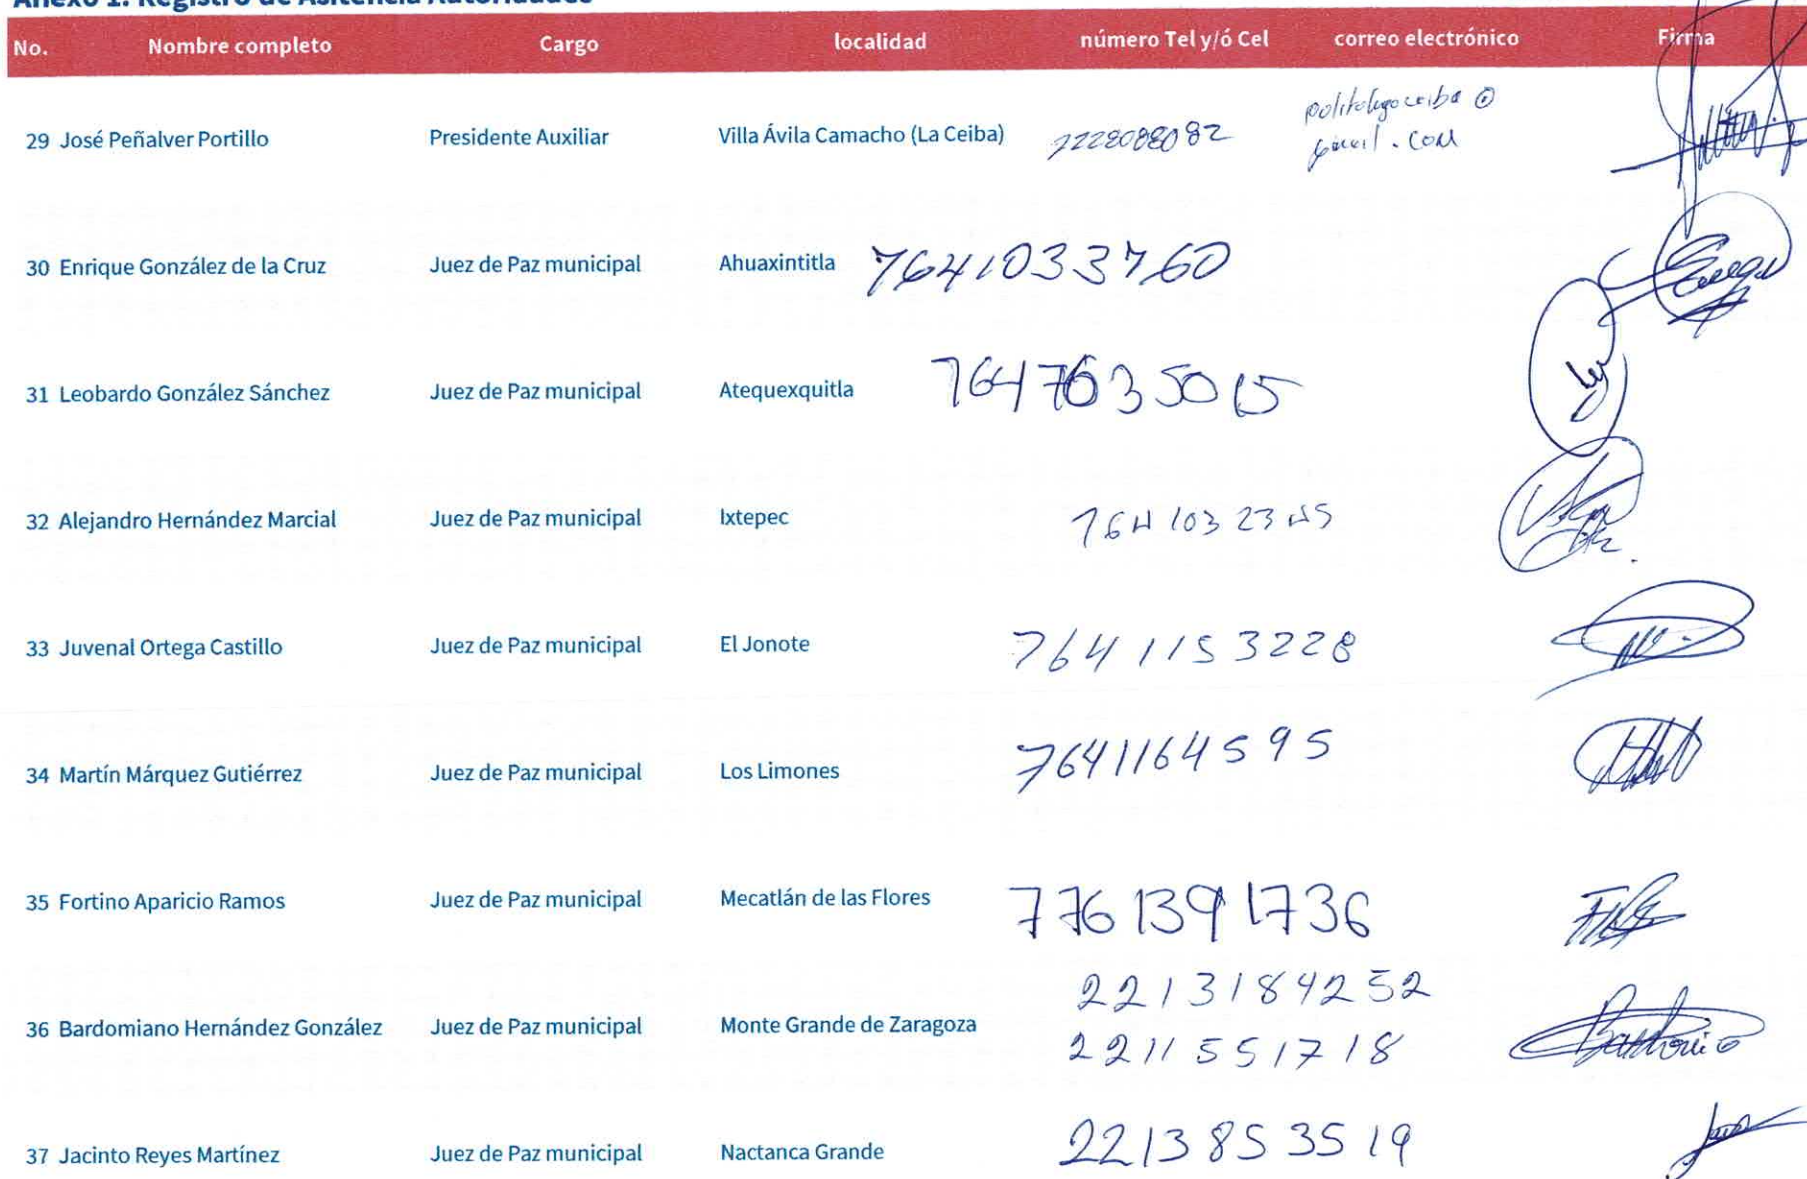 Anexo 1. Registro de Asitencia Autoridades
No. Nombre completo Cargo localidad número Tel y/ó Cel correo electrónico Firma
29 José Peñalver Portillo Presidente Auxiliar Villa Ávila Camacho (La Ceiba) 2228088082 politologoceiba@
gmail.com
30 Enrique González de la Cruz Juez de Paz municipal Ahuaxintitla 7641033760
31 Leobardo González Sánchez Juez de Paz municipal Atequexquitla 7647635015
32 Alejandro Hernández Marcial Juez de Paz municipal Ixtepec 764 103 2345
33 Juvenal Ortega Castillo Juez de Paz municipal El Jonote 7641153228
34 Martín Márquez Gutiérrez Juez de Paz municipal Los Limones 7641164595
35 Fortino Aparicio Ramos Juez de Paz municipal Mecatlán de las Flores 7761391736
36 Bardomiano Hernández González Juez de Paz municipal Monte Grande de Zaragoza 2213184252
2211551718
37 Jacinto Reyes Martínez Juez de Paz municipal Nactanca Grande 2213853519